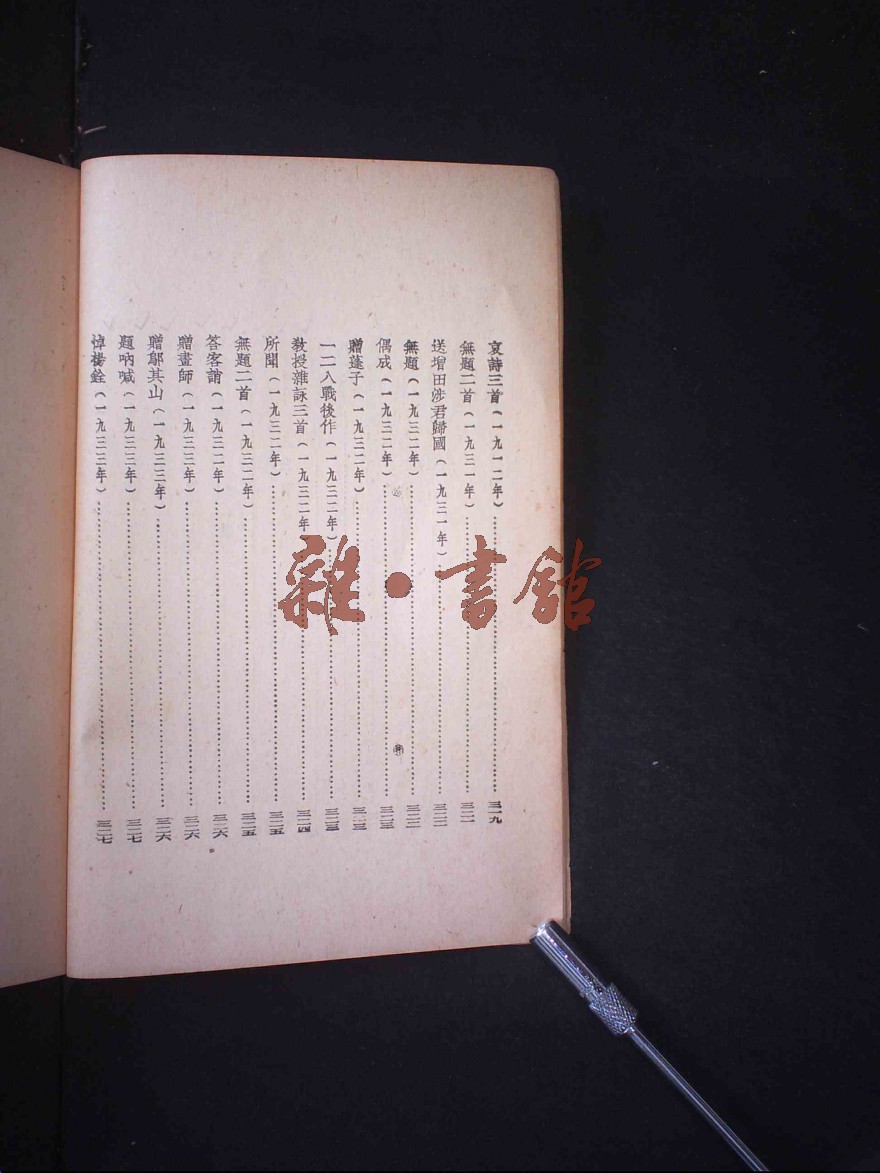 哀詩三首（一九一二年）……三一九
無題二首（一九三一年）……三二一
送增田涉君歸國（一九三一年）……三二二
無題（一九三二年）……三二二
偶成（一九三二年）……三二三
贈蓬子（一九三二年）……三二三
一二八戰後作（一九三二年）……三二三
敎授雜詠三首（一九三二年……三二四
所聞（一九三二年）……三二五
無題二首（一九三二年）……三二五
答客誚（一九三二年）……三二六
贈畫師（一九三三年）……三二六
贈鄔其山（一九三三年）……三二六
題吶喊（一九三三年）……三二七
悼楊銓（一九三三年）……三二七
雜·書館